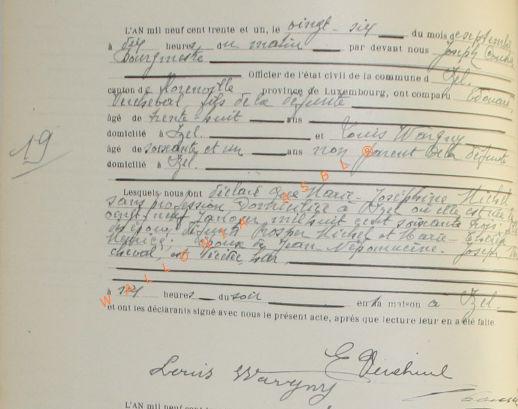 L'AN mil neuf cent trente et un, le vingt-six du mois de septembre
à dix heures du matin par devant nous Joseph
Bourgmestre
Officier de l'état civil de la commune d'Izel
canton de Florenville province de Luxembourg, ont comparu Edouard
fils de la défunte
âgé de trente huit ans
domicilié à Izel et Louis Wargny
âgé de soixante et un ans non parent de la défunte
domicilié à Izel
19
Lesquels nous ont déclaré que Marie-Joséphine Michel
sans profession domiciliée à Izel où elle est née le
vingt neuf janvier mil huit cent soixante trois
des époux défunts Prosper Michel et Marie-
épouse de Jean Népomucène-Joseph
cheval, est décédée hier
à six heures du soir en sa maison à Izel
et ont les déclarants signé avec nous le présent acte, après que lecture leur en a été faite
Louis Wargny
L'AN mil neuf cent